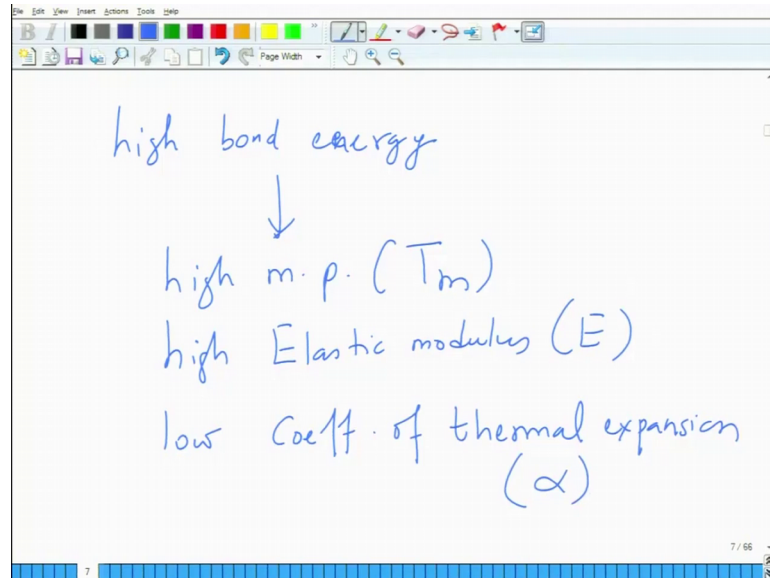 File Edit View Insert Actions Tools Help
B I
Page Width
high bond energy
high m.p. (Tm)
high Elastic modulus (E)
low Coeff. of thermal expansion
(α)
7/66
7